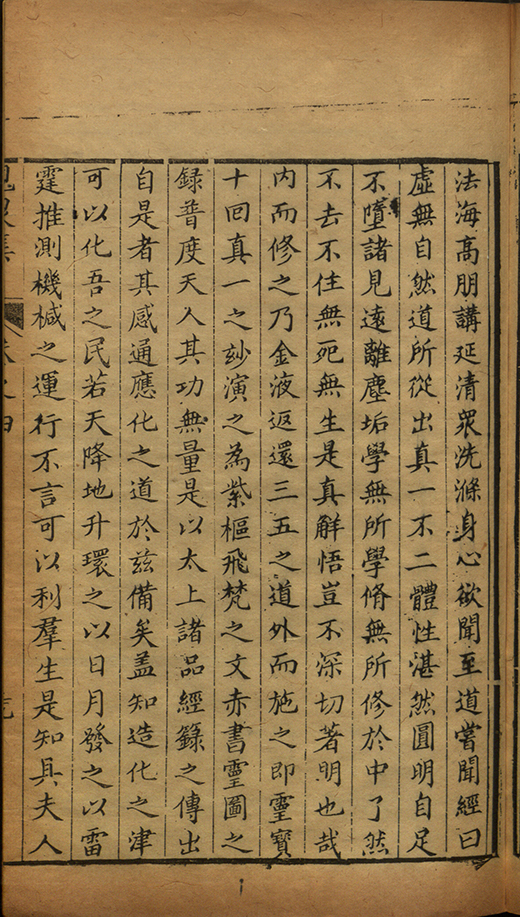 法海高朋講延清眾洗滌身心欲聞至道嘗聞經曰
虛無自然道所從出真一不二體性湛然圓明自足
不墮諸見遠離塵垢學無所學脩無所修於中了然
不去不住無死無生是真解悟豈不深切著明也哉
內而修之乃金液返還三五之道外而施之即靈寶
十回真一之玅演之為紫樞飛梵之文赤書靈圖之
録普度天人其功無量是以太上諸品經籙之傳出
自是者其感通應化之道於兹備矣盖知造化之津
可以化吾之民若天降地升環之以日月發之以雷
霆推測機椷之運行不言可以利羣生是知具夫人